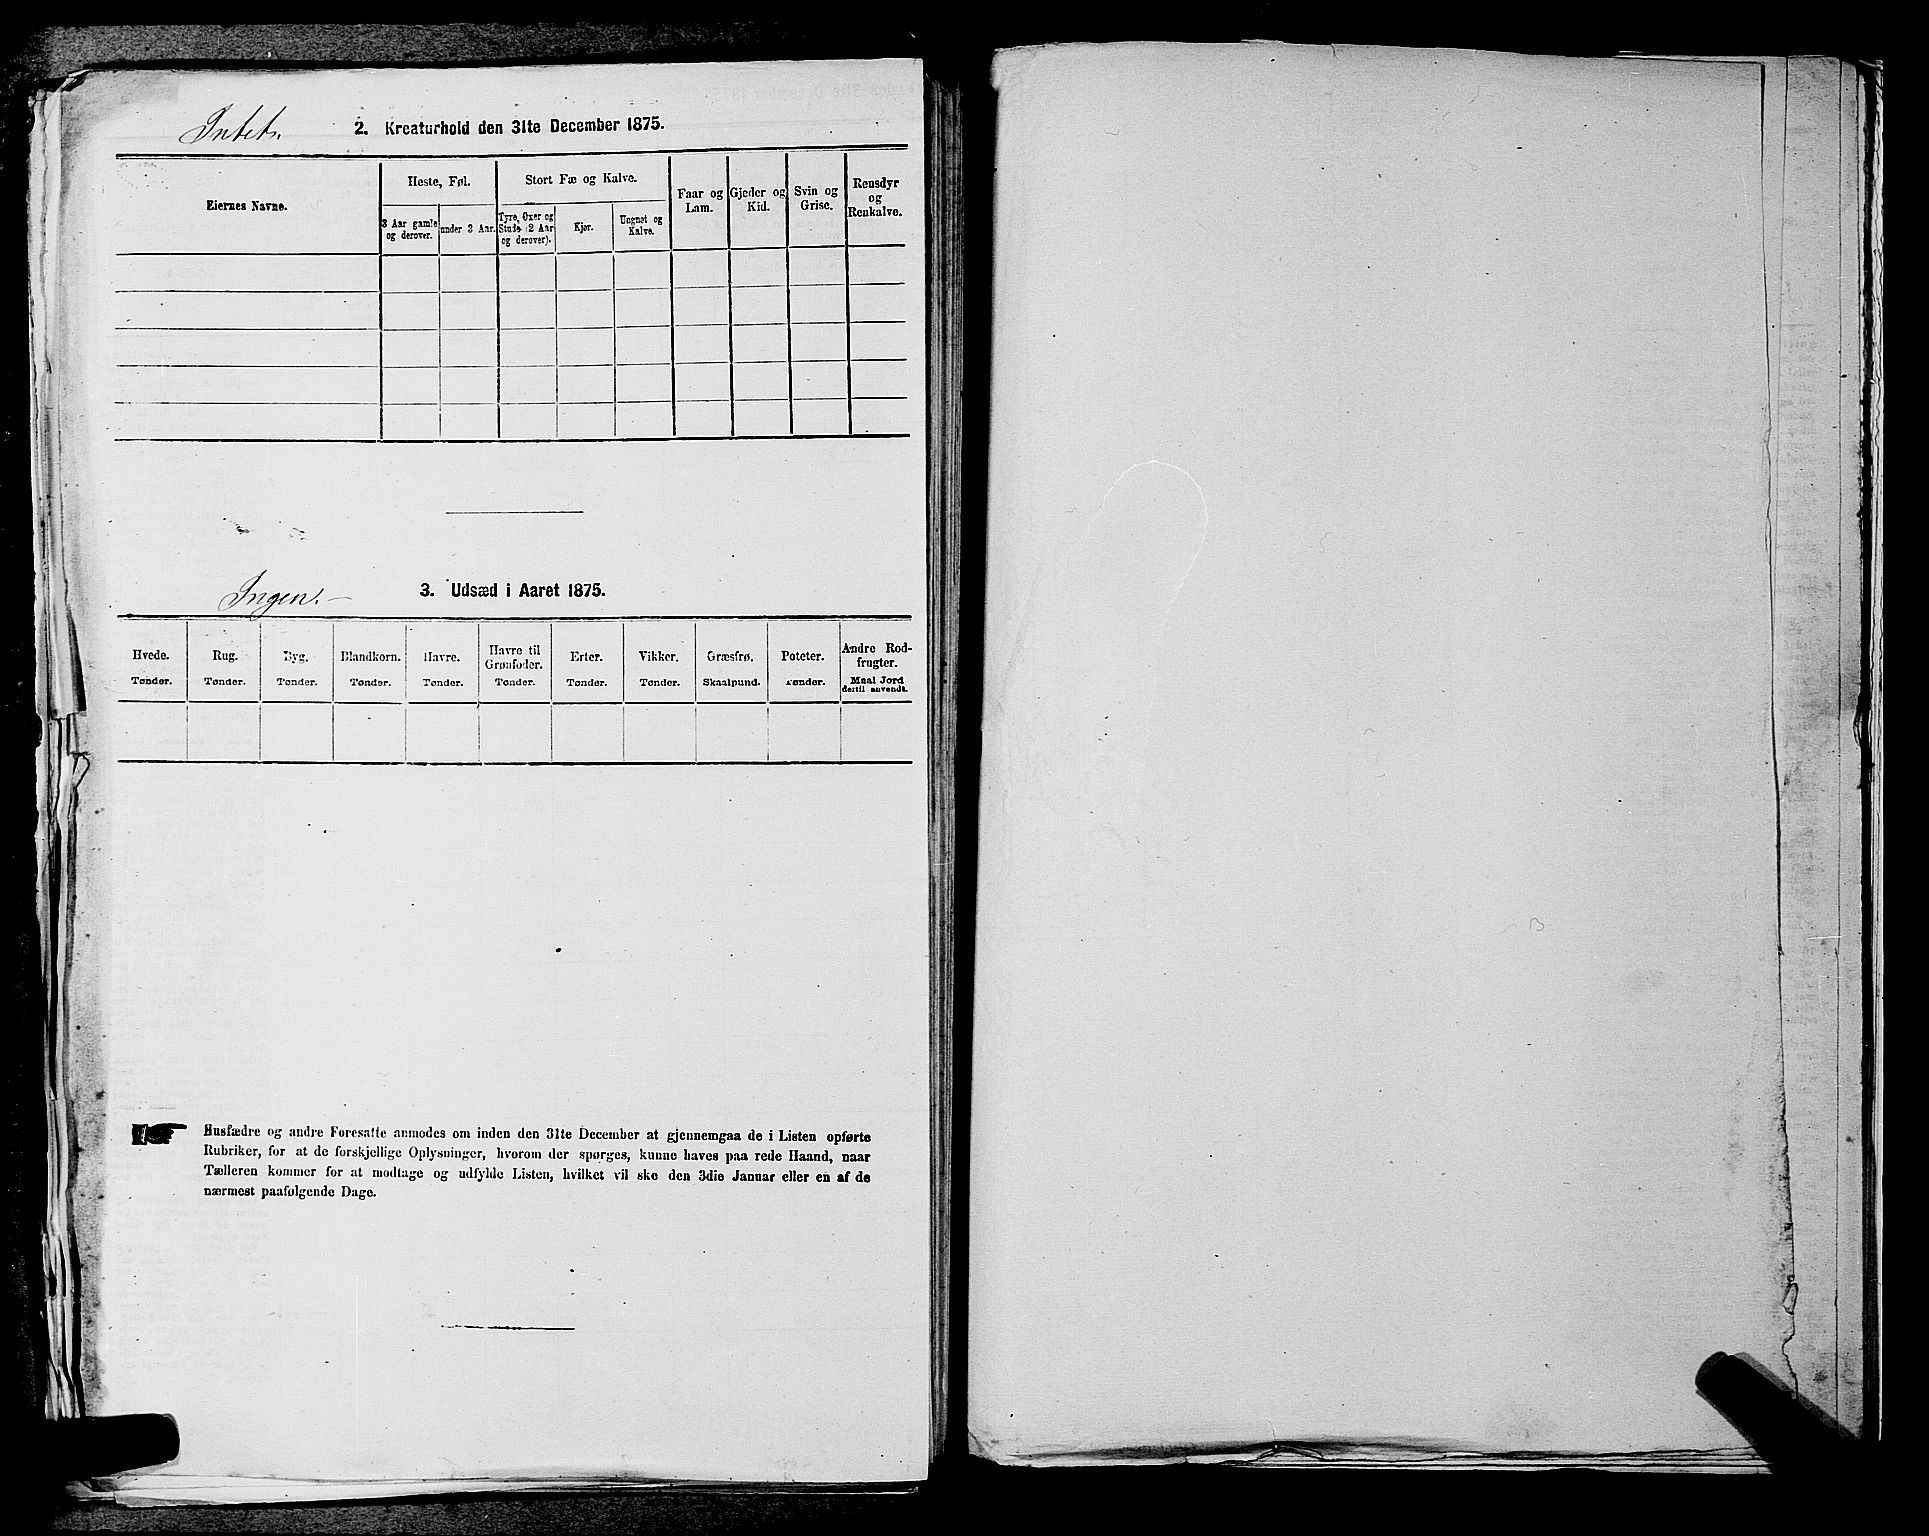 Intet.
2. Kreaturhold den 31te December 1875.
Eiernes Navne.
Heste, Føl.
3 Aar gamle og derover.
under 3 Aar.
Stort Fæ og Kalve.
Tyre, Oxer og Stude (2 Aar og derover).
Kjør.
Ungnøt og Kalve.
Faar og Lam.
Gjeder og Kid.
Svin og Grise.
Rensdyr og Renkalve.
Ingen. —
3. Udsæd i Aaret 1875.
Hvede. Tønder.
Rug. Tønder.
Byg. Tønder.
Blandkorn. Tønder.
Havre. Tønder.
Havre til Grønfoder. Tønder.
Erter. Tønder.
Vikker. Tønder.
Græsfrø. Skaalpund.
Poteter. Tønder.
Andre Rodfrugter. Maal Jord dertil anvendt.
Husfædre og andre Foresatte anmodes om inden den 31te December at gjennemgaa de i Listen opførte
Rubriker, for at de forskjellige Oplysninger, hvorom der spørges, kunne haves paa rede Haand, naar
Tælleren kommer for at modtage og udfylde Listen, hvilket vil ske den 3die Januar eller en af de
nærmest paafølgende Dage.